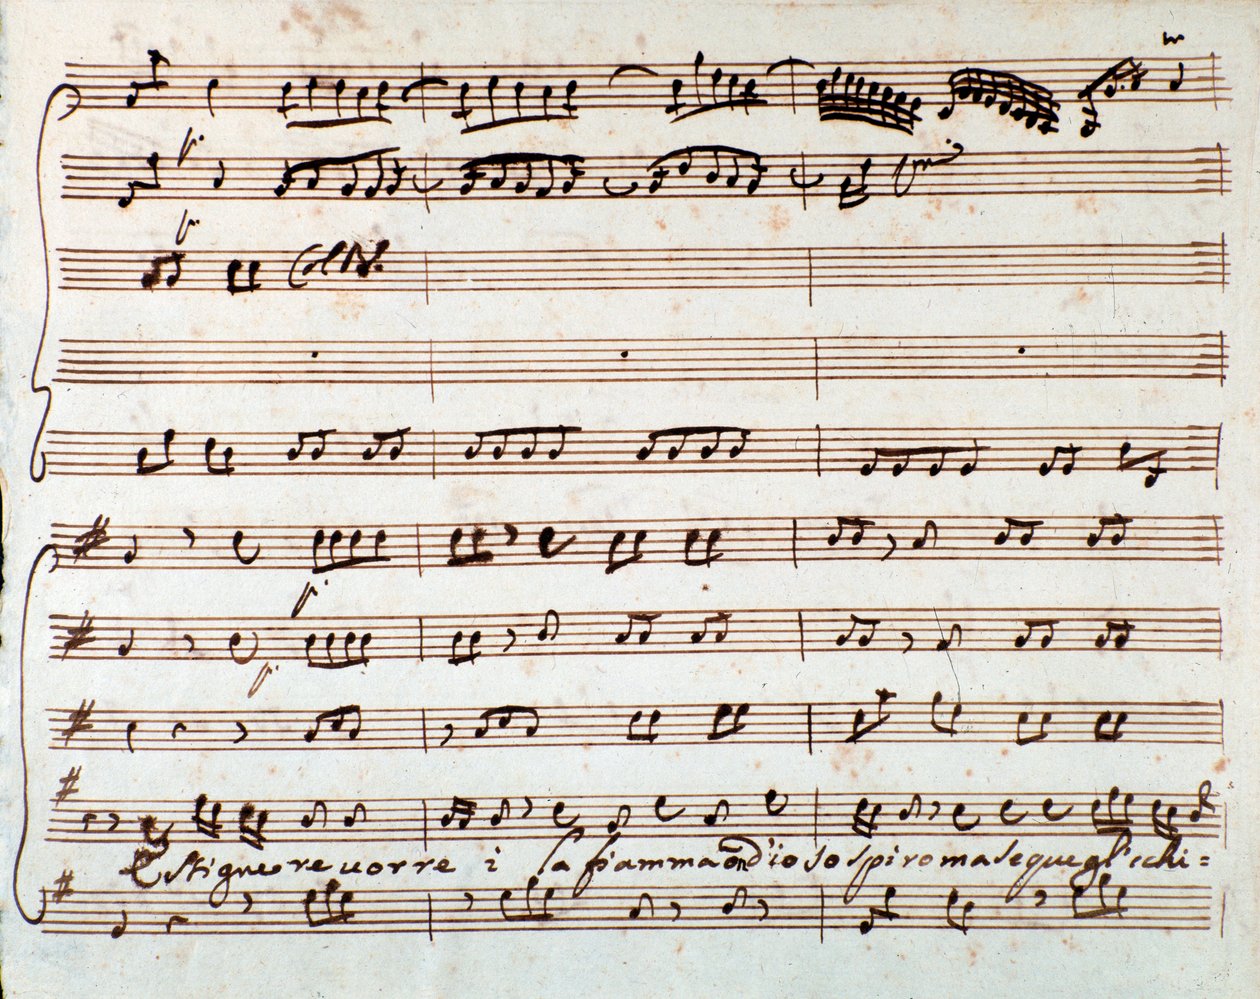 p.
p.
Col B.
p.
p.
Estiguere vorre i la fiamma ond'io sospiro ma se que gl'occhi=